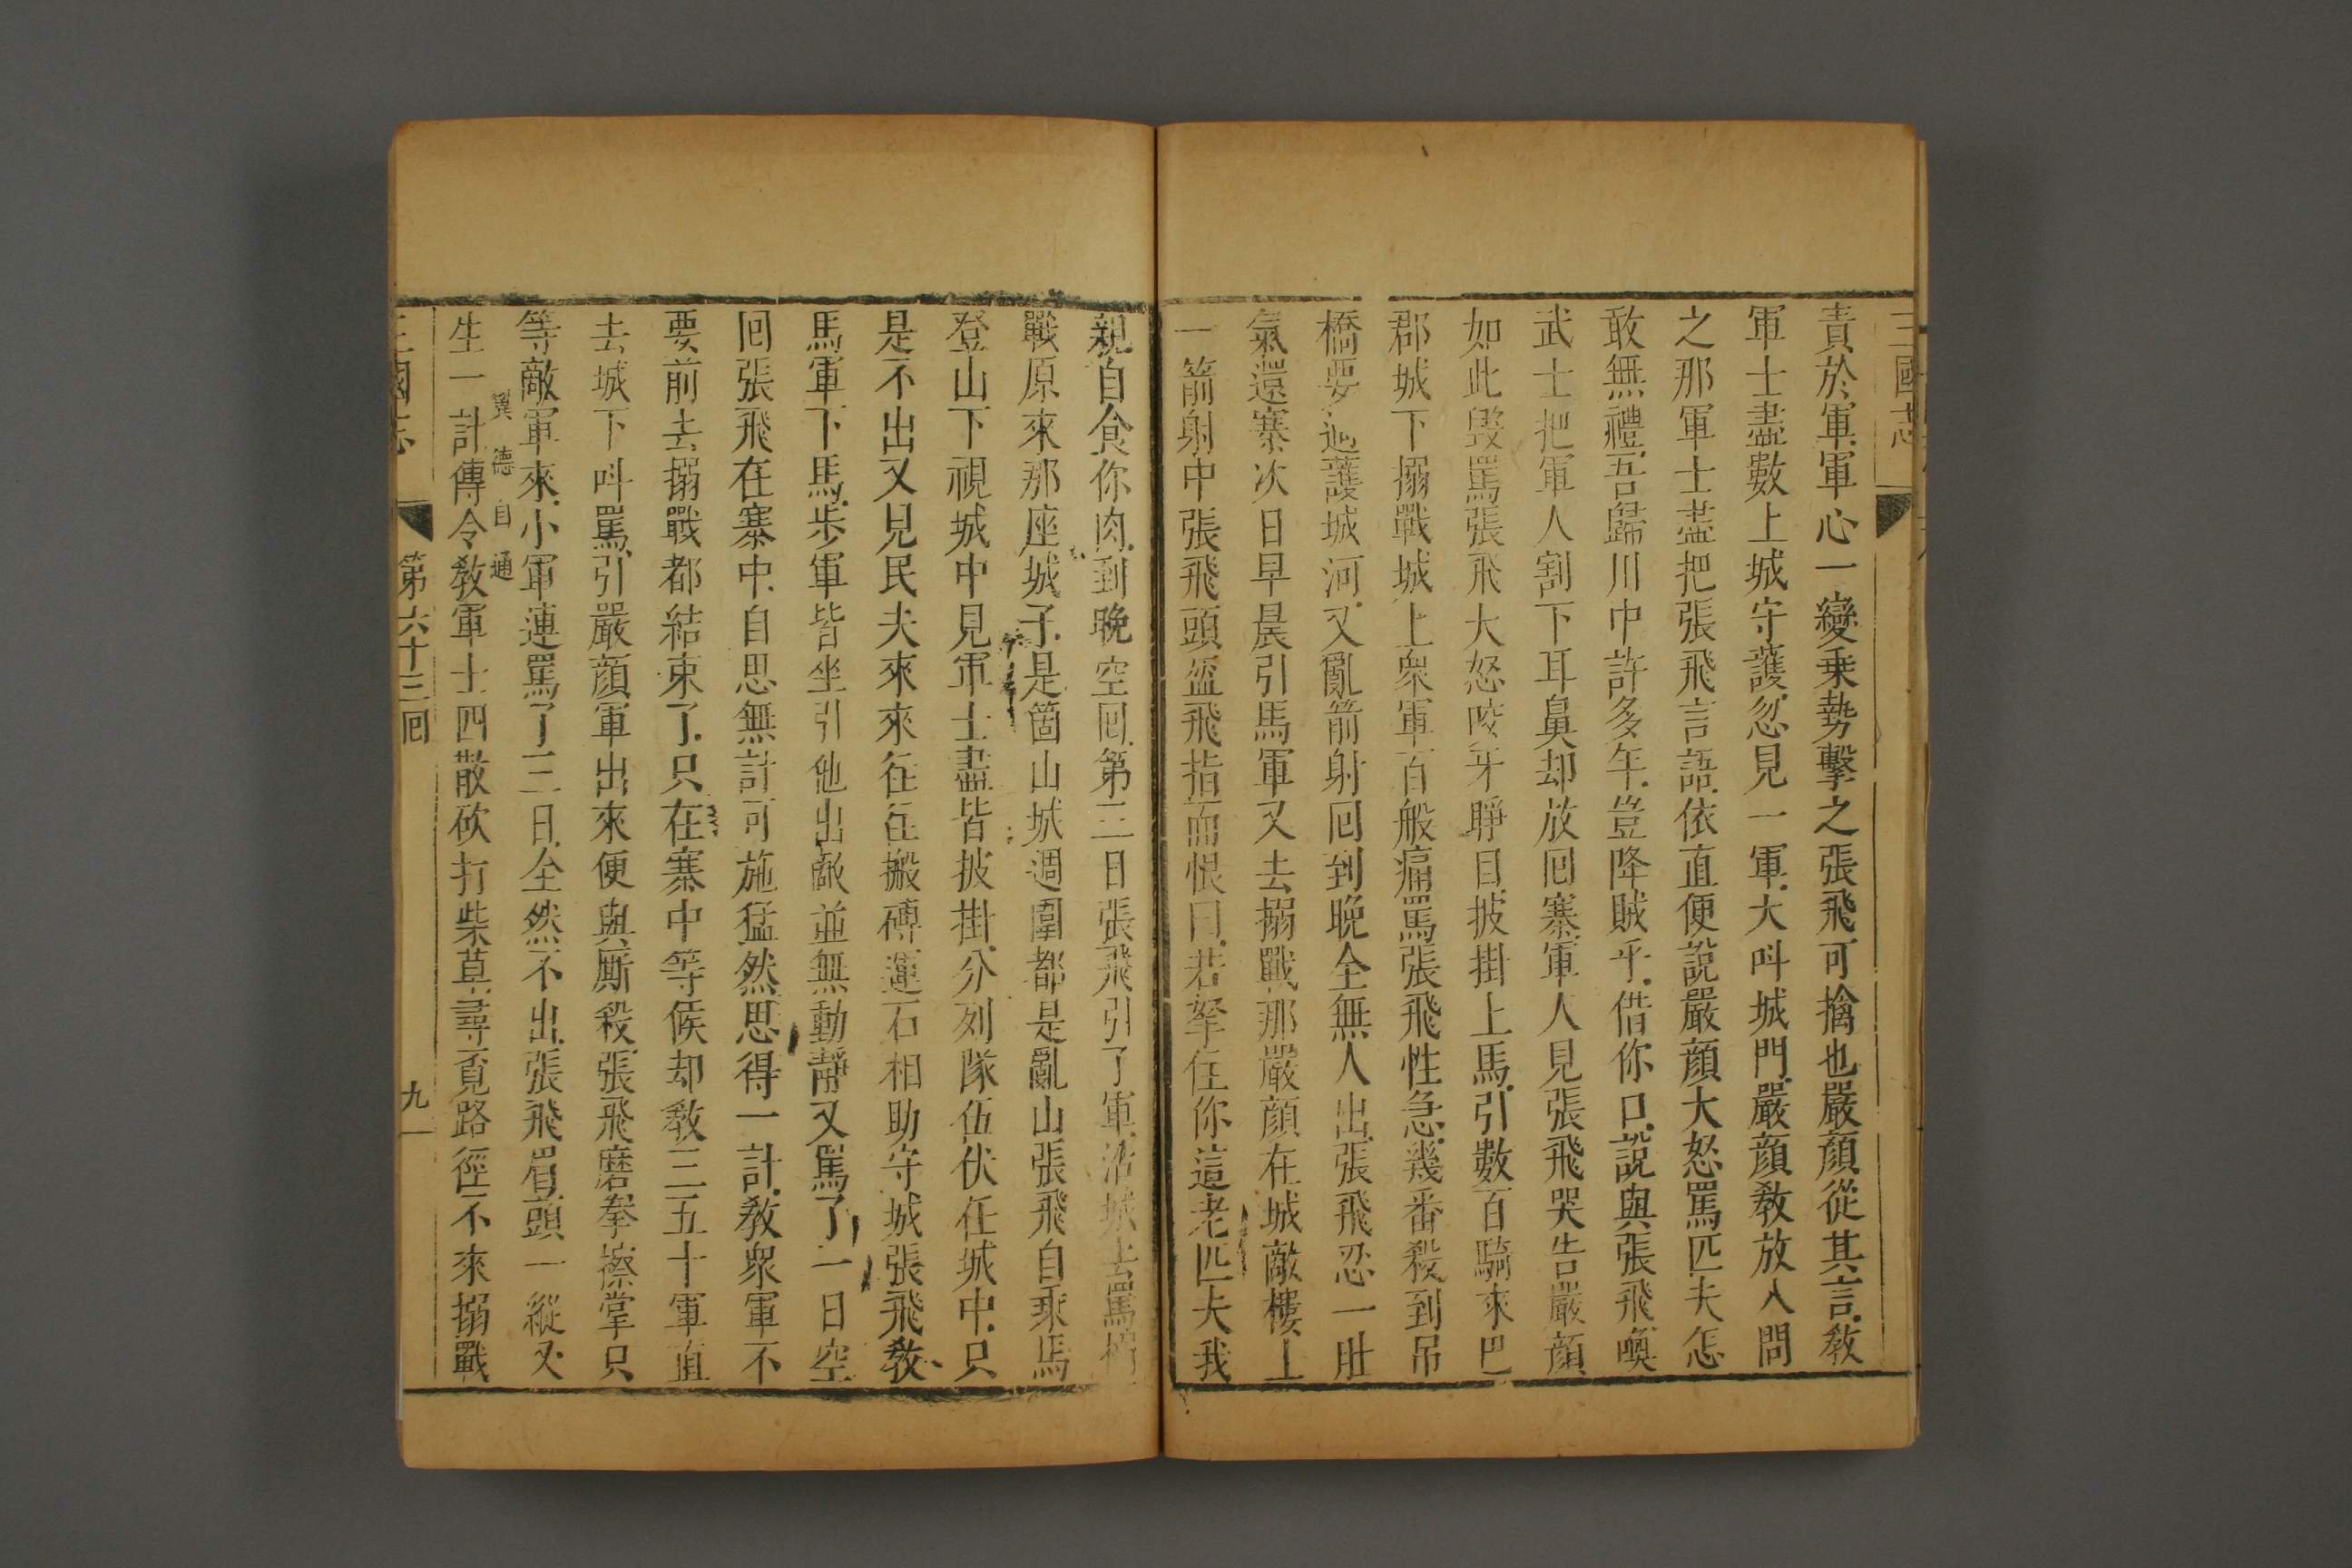 三國志
責於軍軍心一變乗勢擊之張飛可擒也嚴顔從其言教
軍士盡數上城守護忽見一軍大呌城門嚴顔教放入問
之那軍士盡把張飛言語依直便說嚴顔大怒罵匹夫怎
敢無禮吾歸川中許多年豈降賊乎借你口說與張飛喚
武士把軍人割下耳鼻却放囘寨軍人見張飛哭告嚴顔
如此毁罵張飛大怒咬牙睜目披掛上馬引數百騎來巴
郡城下搦戰城上衆軍百般痛罵張飛性急幾番殺到吊
橋要過護城河又亂箭射囘到晚全無人出張飛忍一肚
氣還寨次日早晨引馬軍又去搦戰那嚴顔在城敵樓上
一箭射中張飛頭盔飛指而恨曰若拏住你這老匹夫我
親自食你肉到晚空囘第三日張飛引了軍沿城去罵
戰原來那座城子是箇山城週圍都是亂山張飛自乘馬
登山下視城中見軍士盡皆披掛分列隊伍伏在城中只
是不出又見民夫來來往往搬磚運石相助守城張飛教
馬軍下馬步軍皆坐引他出敵並無動靜又罵了一日空
囘張飛在寨中自思無計可施猛然思得一計教衆軍不
要前去搦戰都結束了只在寨中等候却教三五十軍直
去城下呌罵引嚴顔軍出來便與厮殺張飛磨拳擦掌只
等敵軍來小軍連罵了三日全然不出張飛眉頭一縱又
翼德自通
生一計傳令教軍士四散砍打柴草尋覓路徑不來搦戰
三國志 第六十三囘 九